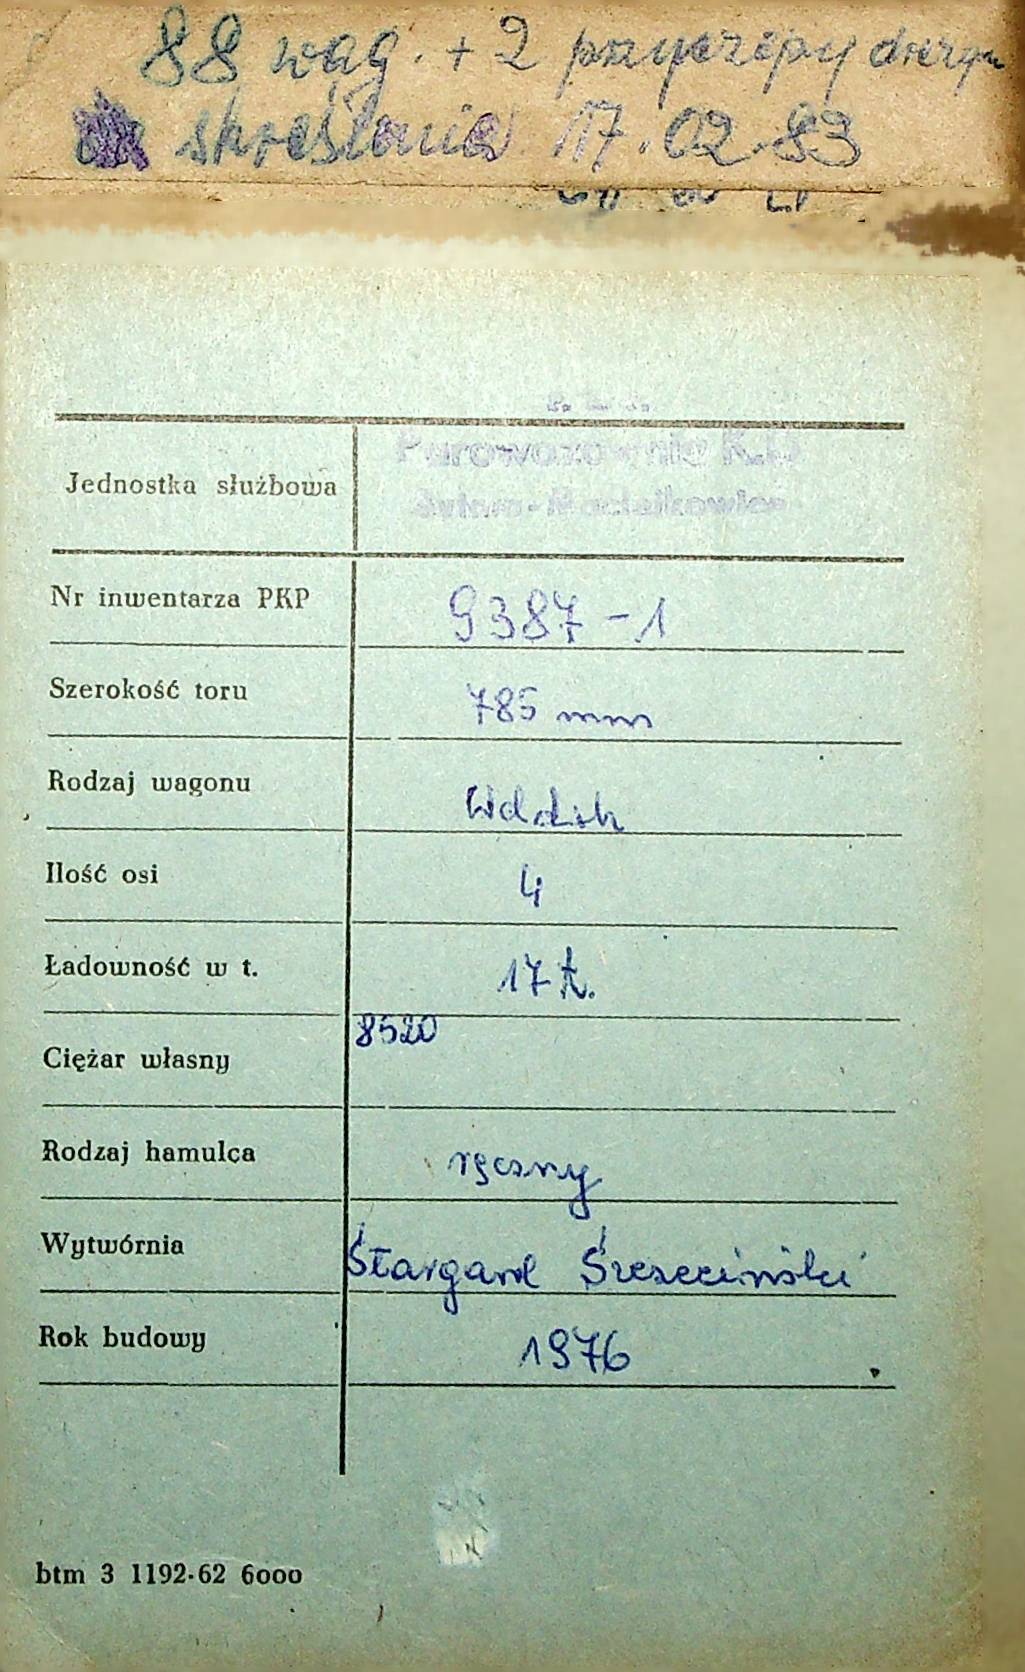 88 wag. + 2 przyczepy drezyn
skreślenie 17.02.93
Jednostka służbowa
Parowozownia K.D
Nr inwentarza PKP 9387-1
Szerokość toru 785 mm
Rodzaj wagonu Wddxh
Ilość osi 4
Ładowność w t. 17 t.
Ciężar własny 8520
Rodzaj hamulca ręczny
Wytwórnia Stargard Szczeciński
Rok budowy 1976
btm 3 1192-62 6000